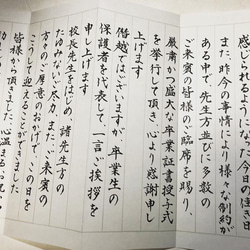 感じ
また昨今の事情により様々な制約が
ある中で、先生方並びに多数の
ご来賓の皆様のご臨席を賜り、
厳粛かつ盛大な卒業証書授子式
を挙行して頂き心より感謝申し
上げます
僭越ではございますが、卒業生の
保護者を代表して、一言ご挨拶を
申し上げます
校長先生をはじめ、諸先生方の
たゆみない尽力、ご来賓の
方々の厚意のおかげで、この日を
こうして迎えることができました
皆様から頂きました、心温まる